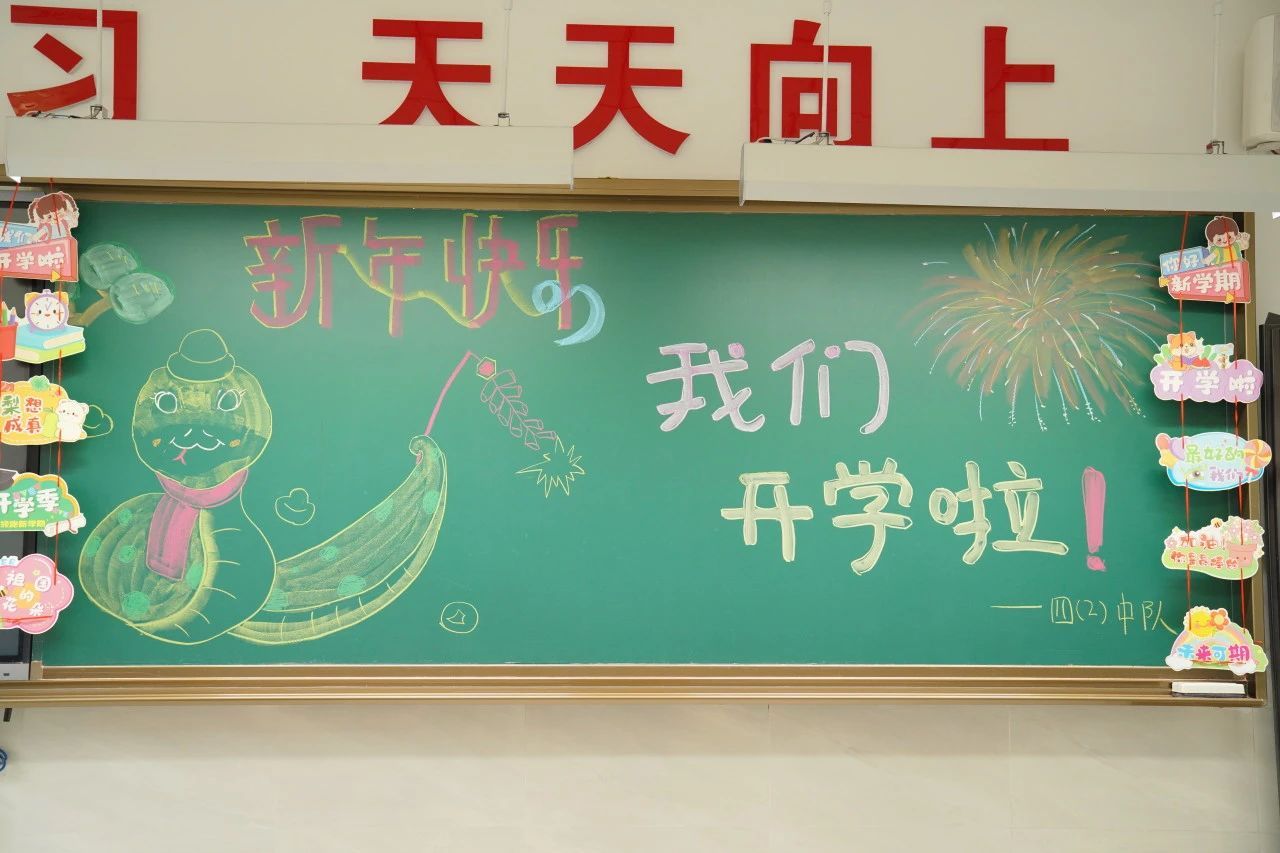 习 天天向上
新年快乐
我们
开学啦!
—四(2)中队
我们
开学啦
梨想
成真
开学季
祖国
的
花朵
你好
新学期
开学啦
最好的
我们
加油!
你是最棒的
未来可期